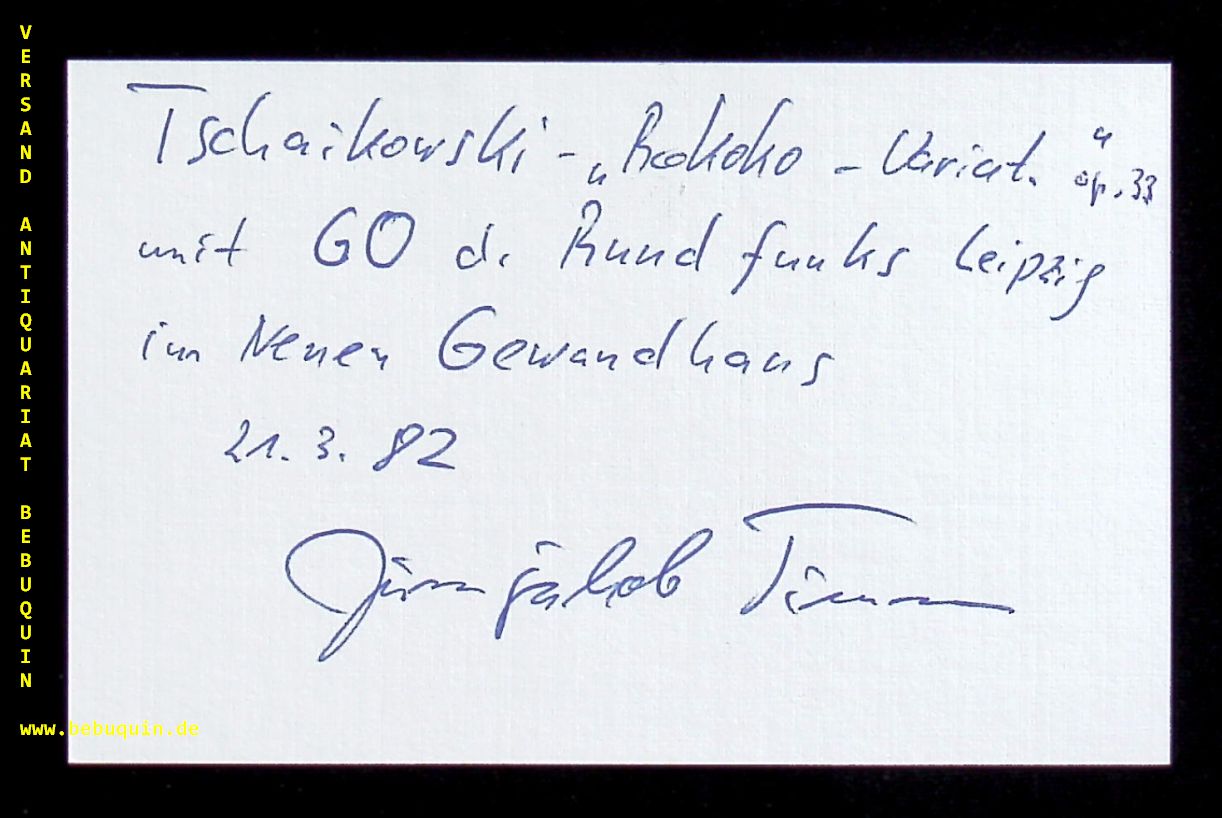 VERSAND ANTIQUARIAT BEBUQUIN
Tschaikowski - „Rokoko - Variat." op. 33
mit GO d. Rundfunks Leipzig
im Neuen Gewandhaus
21. 3. 82
Jürnjakob Timm
www.bebuquin.de